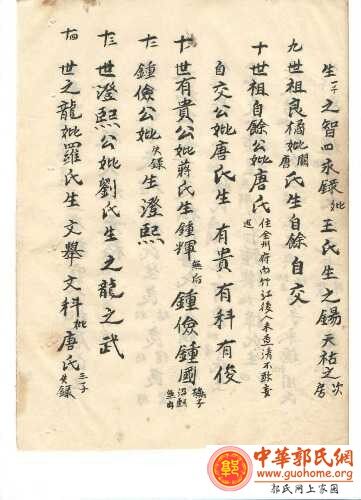 生一子之智四永錄妣王氏生之錫天祐之次房
九世祖良橘妣周唐氏生自餘自交
十世祖自餘公妣唐氏住全州府内竹江後人未查清不敢妄述
自交公妣唐氏生有貴有科有俊
十一世有貴公妣蔣氏生鍾輝無后鍾儉鍾國
十二鍾儉公妣失錄生澄熙
十三世澄熙公妣劉氏生之龍之武
十四世之龍妣羅氏生文舉文科妣唐氏三子失錄
中華郭氏網
www.guohome.org
郭氏网上家园